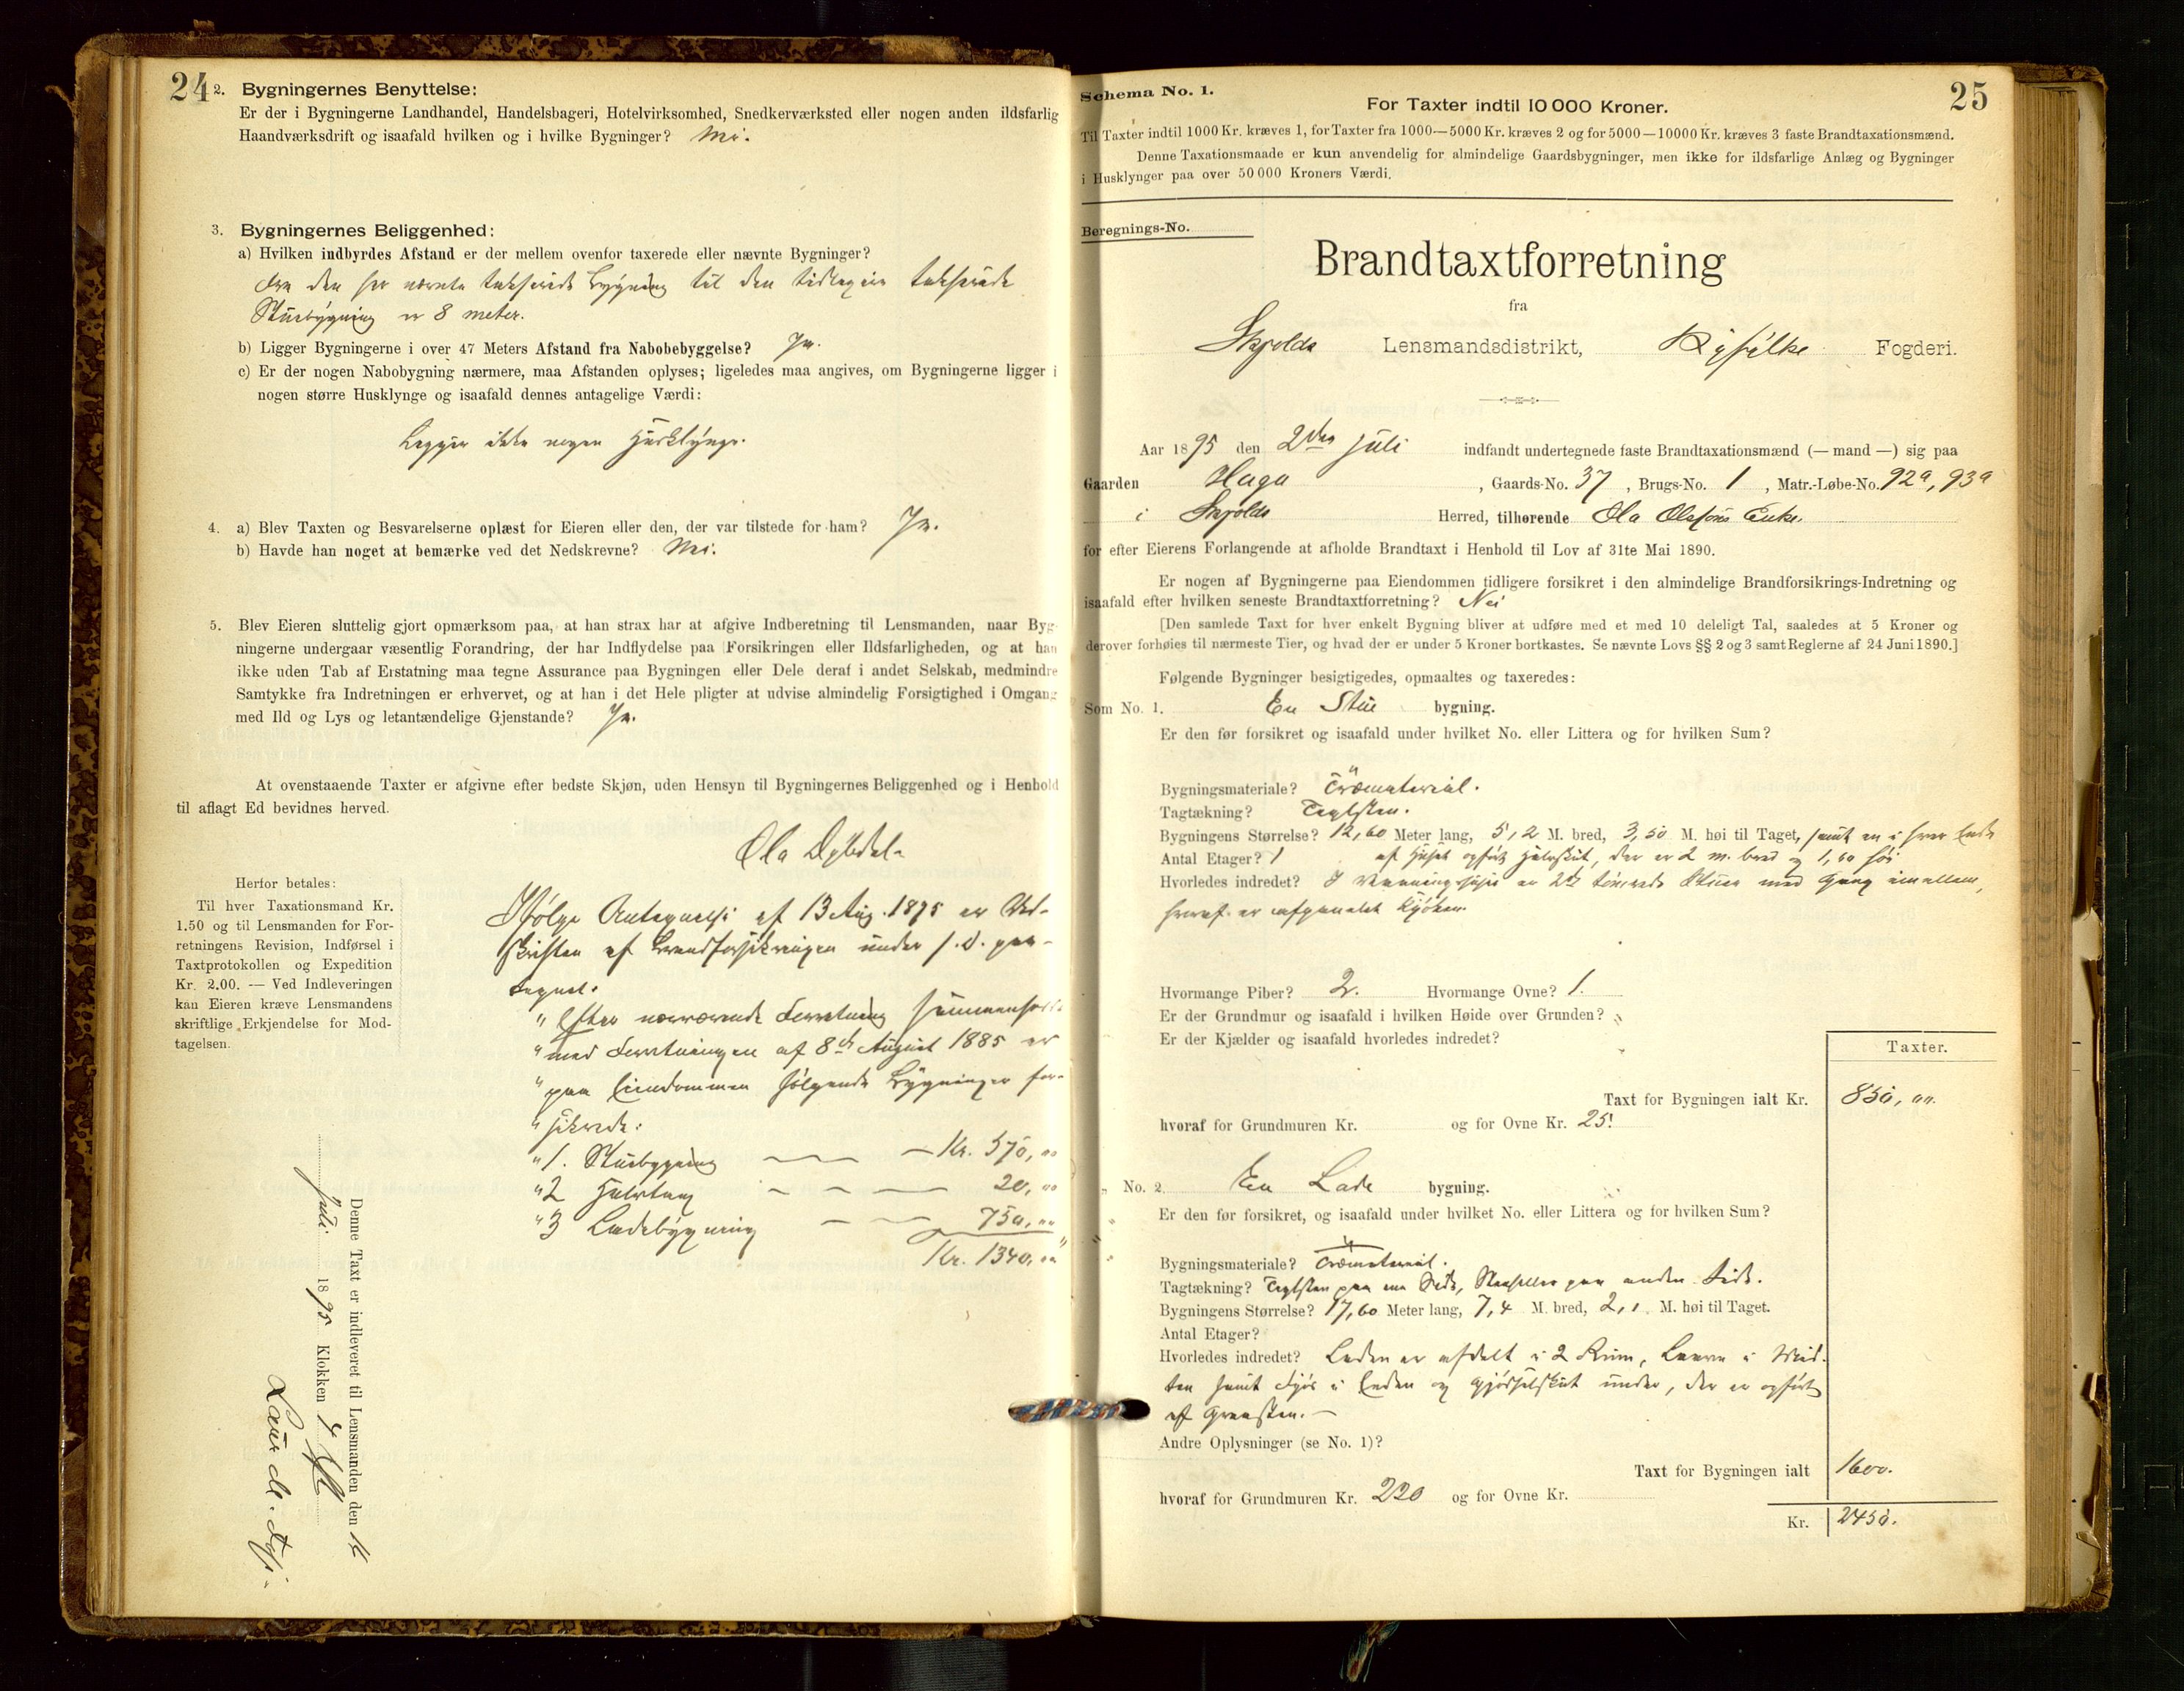 24
2. Bygningernes Benyttelse:
Er der i Bygningerne Landhandel, Handelsbageri, Hotelvirksomhed, Snedkerværksted eller nogen anden ildsfarlig
Haandværksdrift og isaafald hvilken og i hvilke Bygninger? Nei.
3. Bygningernes Beliggenhed:
a) Hvilken indbyrdes Afstand er der mellem ovenfor taxerede eller nævnte Bygninger?
Fra den her nævnte takserede Bygning til den tidligere takserede
Stuebygning er 8 meter.
b) Ligger Bygningerne i over 47 Meters Afstand fra Nabobebyggelse? Ja.
c) Er der nogen Nabobygning nærmere, maa Afstanden oplyses; ligeledes maa angives, om Bygningerne ligger i
nogen større Husklynge og isaafald dennes antagelige Værdi:
Ligger ikke nogen Husklynge.
4. a) Blev Taxten og Besvarelserne oplæst for Eieren eller den, der var tilstede for ham? Ja.
b) Havde han noget at bemærke ved det Nedskrevne? Nei.
5. Blev Eieren sluttelig gjort opmærksom paa, at han strax har at afgive Indberetning til Lensmanden, naar Byg-
ningerne undergaar væsentlig Forandring, der har Indflydelse paa Forsikringen eller Ildsfarligheden, og at han
ikke uden Tab af Erstatning maa tegne Assurance paa Bygningen eller Dele deraf i andet Selskab, medmindre
Samtykke fra Indretningen er erhvervet, og at han i det Hele pligter at udvise almindelig Forsigtighed i Omgang
med Ild og Lys og letantændelige Gjenstande? Ja.
At ovenstaaende Taxter er afgivne efter bedste Skjøn, uden Hensyn til Bygningernes Beliggenhed og i Henhold
til aflagt Ed bevidnes herved.
Ola Dybdal
Herfor betales:
Til hver Taxationsmand Kr.
1.50 og til Lensmanden for For-
retningens Revision, Indførsel i
Taxtprotokollen og Expedition
Kr. 2.00. — Ved Indleveringen
kan Eieren kræve Lensmandens
skriftlige Erkjendelse for Mod-
tagelsen.
Ifølge Antegnelse af 13 Aug. 1895 er Ud-
skriften af Brandforsikringen under s. d. paa-
tegnet.
"Efter nærværende Forretning sammenholdt
"med Forretningen af 8de August 1885 er
"paa Eiendommen følgende Bygninger for-
"sikrede:
"1. Stuebygning — — — Kr. 570,00
"2 Halvtag — — — — 20,00
"3 Ladebygning — — 750,00
Kr. 1340,00"
Denne Taxt er indleveret til Lensmanden den 12
Juli 1895 Klokken 4 Eft
25
Schema No. 1.
For Taxter indtil 10 000 Kroner.
Til Taxter indtil 1000 Kr. kræves 1, for Taxter fra 1000—5000 Kr. kræves 2 og for 5000—10000 Kr. kræves 3 faste Brandtaxationsmænd.
Denne Taxationsmaade er kun anvendelig for almindelige Gaardsbygninger, men ikke for ildsfarlige Anlæg og Bygninger
i Husklynger paa over 50 000 Kroners Værdi.
Beregnings-No.
Brandtaxtforretning
fra
Skjolds Lensmandsdistrikt, Ryfylke Fogderi.
Aar 1895 den 2den Juli indfandt undertegnede faste Brandtaxationsmænd (— mand —) sig paa
Gaarden Haga, Gaards-No. 37, Brugs-No. 1, Matr.-Løbe-No. 92a, 93a
i Skjolds Herred, tilhørende Ola Olsens Enke
for efter Eierens Forlangende at afholde Brandtaxt i Henhold til Lov af 31te Mai 1890.
Er nogen af Bygningerne paa Eiendommen tidligere forsikret i den almindelige Brandforsikrings-Indretning og
isaafald efter hvilken seneste Brandtaxtforretning? Nei
[Den samlede Taxt for hver enkelt Bygning bliver at udføre med et med 10 deleligt Tal, saaledes at 5 Kroner og
derover forhøies til nærmeste Tier, og hvad der er under 5 Kroner bortkastes. Se nævnte Lovs §§ 2 og 3 samt Reglerne af 24 Juni 1890.]
Følgende Bygninger besigtigedes, opmaaltes og taxeredes:
Som No. 1. En Stue bygning.
Er den før forsikret og isaafald under hvilket No. eller Littera og for hvilken Sum?
"
Bygningsmateriale? Træmaterial.
Tagtækning? Teglsten.
Bygningens Størrelse? 12,60 Meter lang, 5,2 M. bred, 3,50 M. høi til Taget, samt en i hver Ende
Antal Etager? 1 af Huset opført Halvskut, der er 2 m. bred og 1,60 høi
Hvorledes indredet? I Vaaningshuset er 2de tømrede Stuer med Gang imellem,
hvoraf er afpanelet Kjøken.
Hvormange Piber? 2. Hvormange Ovne? 1.
Er der Grundmur og isaafald i hvilken Høide over Grunden?
Er der Kjælder og isaafald hvorledes indredet?
Taxter.
Taxt for Bygningen ialt Kr. 850,00.
hvoraf for Grundmuren Kr. og for Ovne Kr. 25.
" No. 2. En Lade bygning.
Er den før forsikret, og isaafald under hvilket No. eller Littera og for hvilken Sum?
Bygningsmateriale? Træmaterial.
Tagtækning? Teglsten paa ene Side, Steenheller paa anden Side.
Bygningens Størrelse? 17,60 Meter lang, 7,4 M. bred, 2,1 M. høi til Taget.
Antal Etager?
Hvorledes indredet? Laden er afdelt i 2 Rum, Laave i Mid-
ten samt Fjøs i Enden og Gjødselskut under, der er opført
af Graasten. —
Andre Oplysninger (se No. 1)?
Taxt for Bygningen ialt 1600.
hvoraf for Grundmuren Kr. 220 og for Ovne Kr.
Kr. 2450.